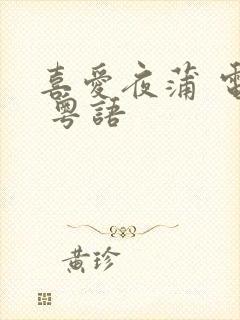 喜愛夜蒲 電
粵語
黃珍